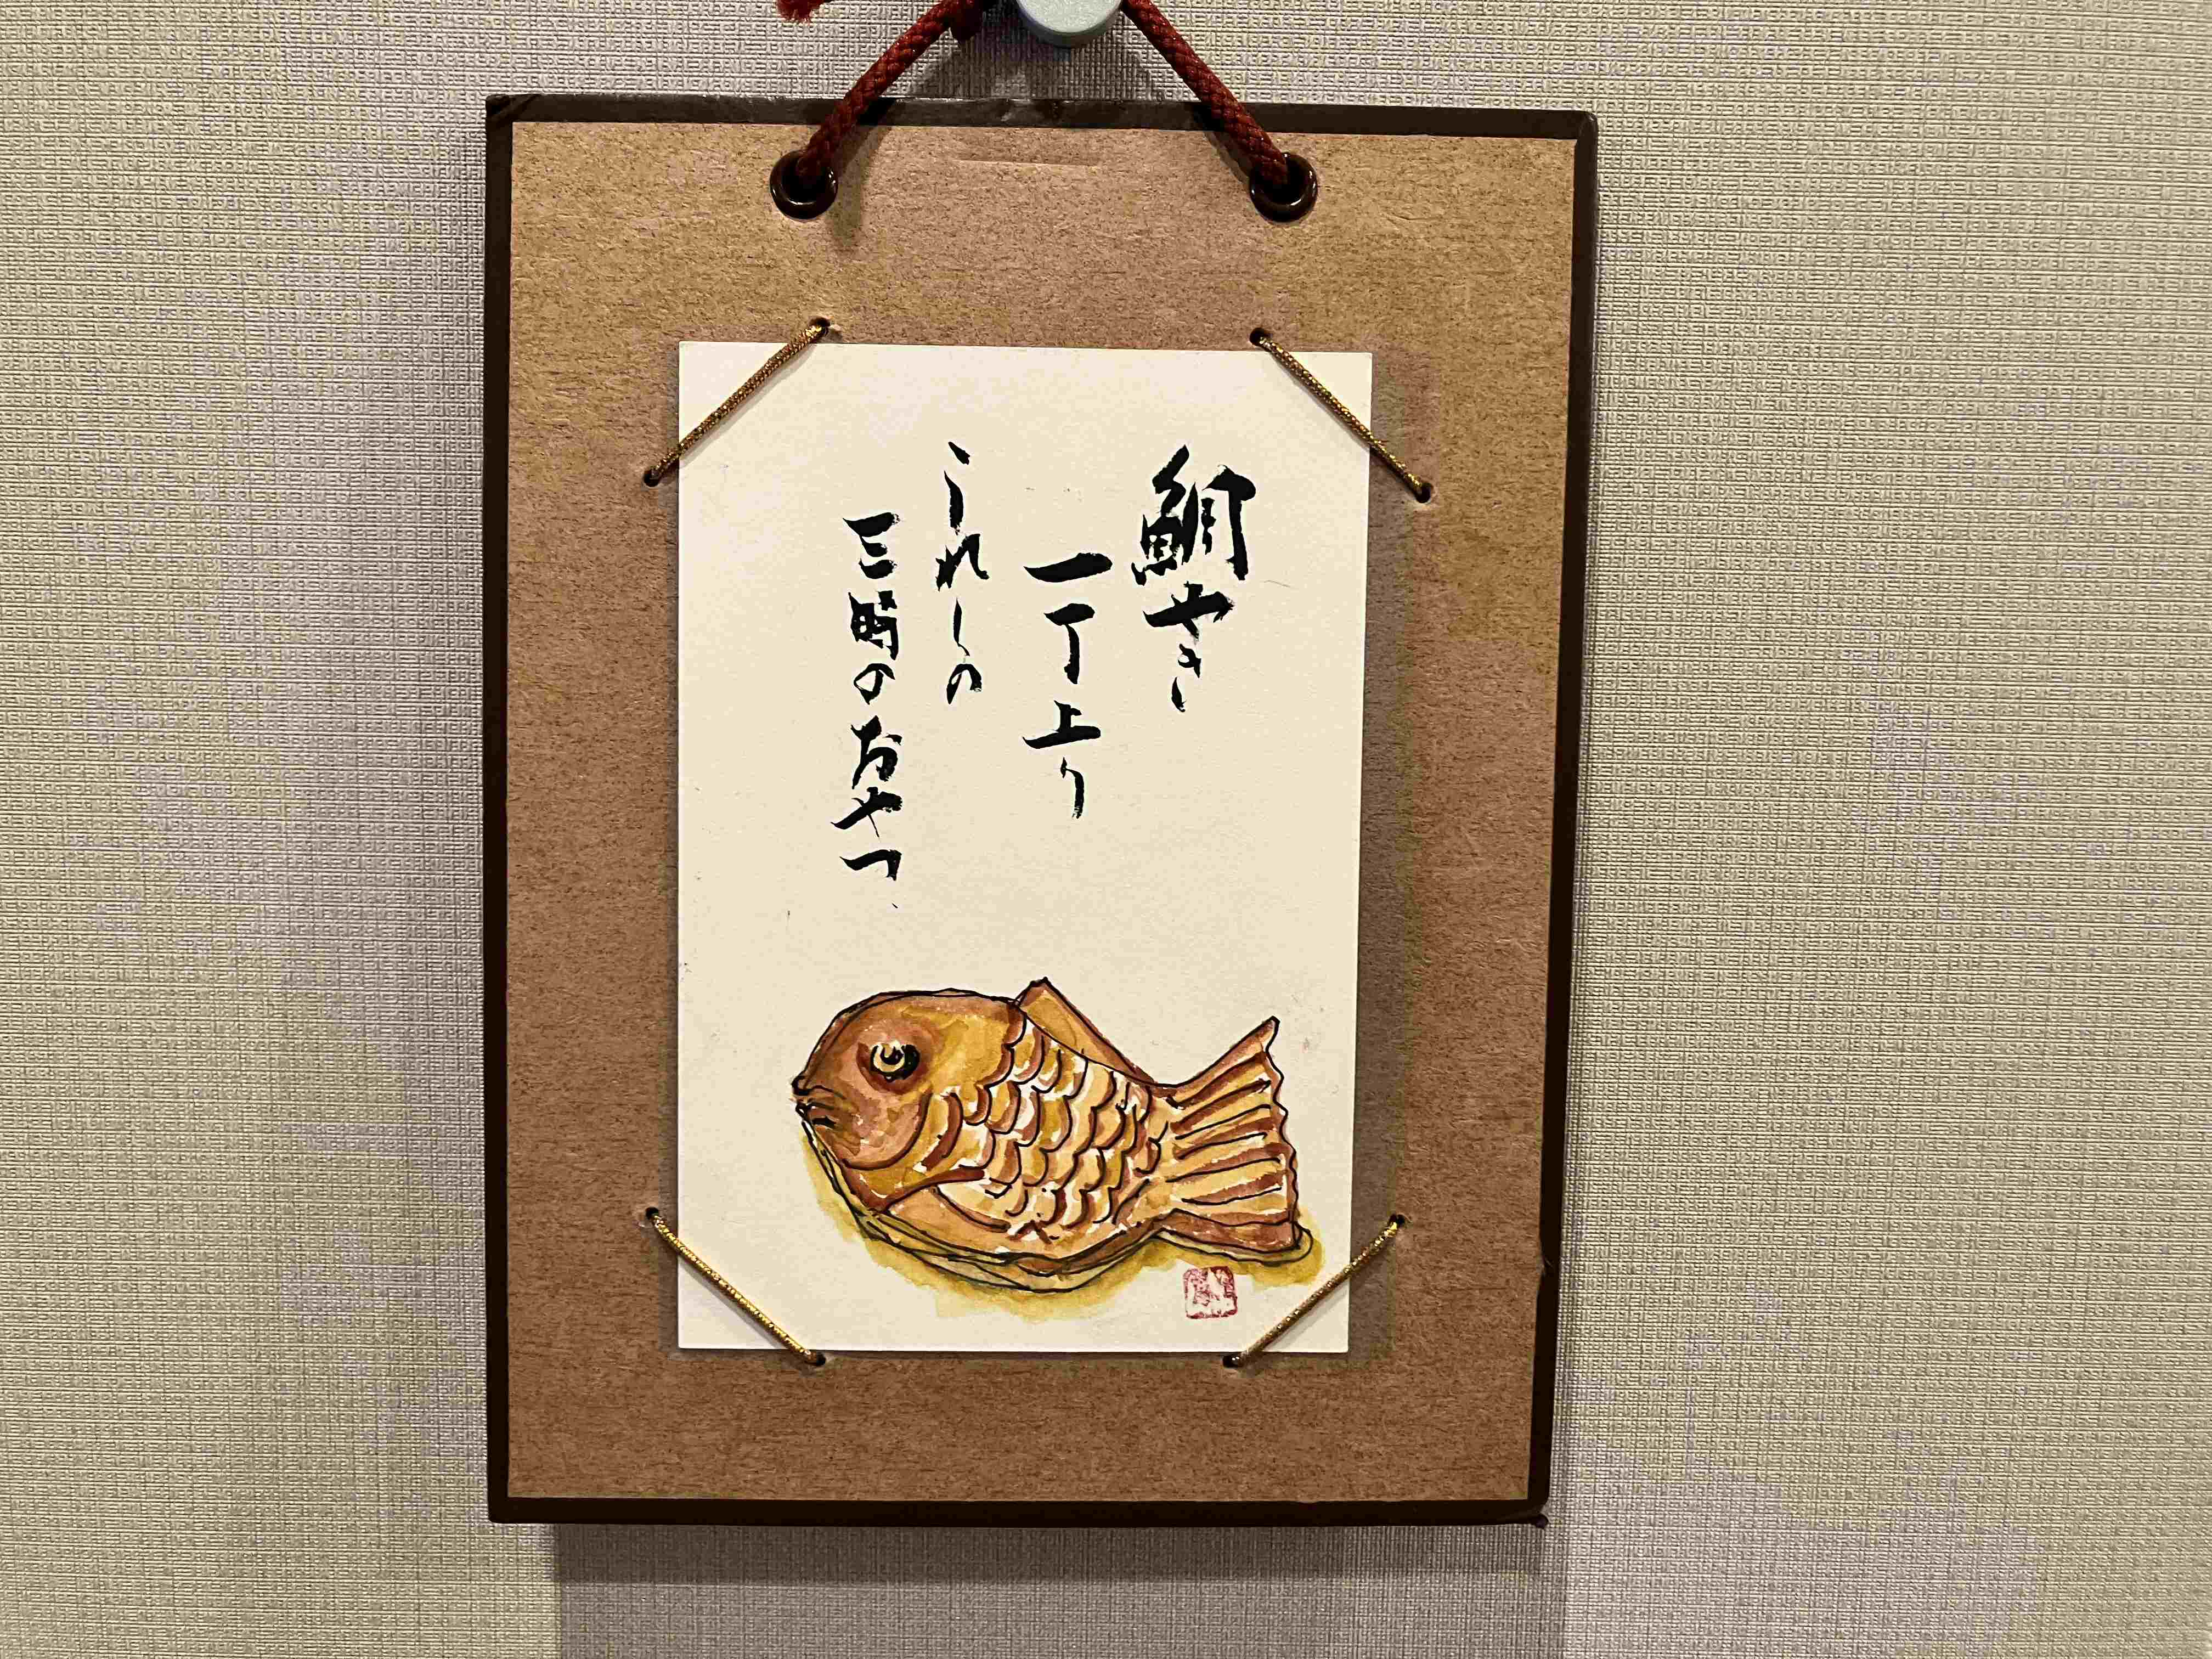 鯛やき
一丁上り
うれしの
三時のおやつ